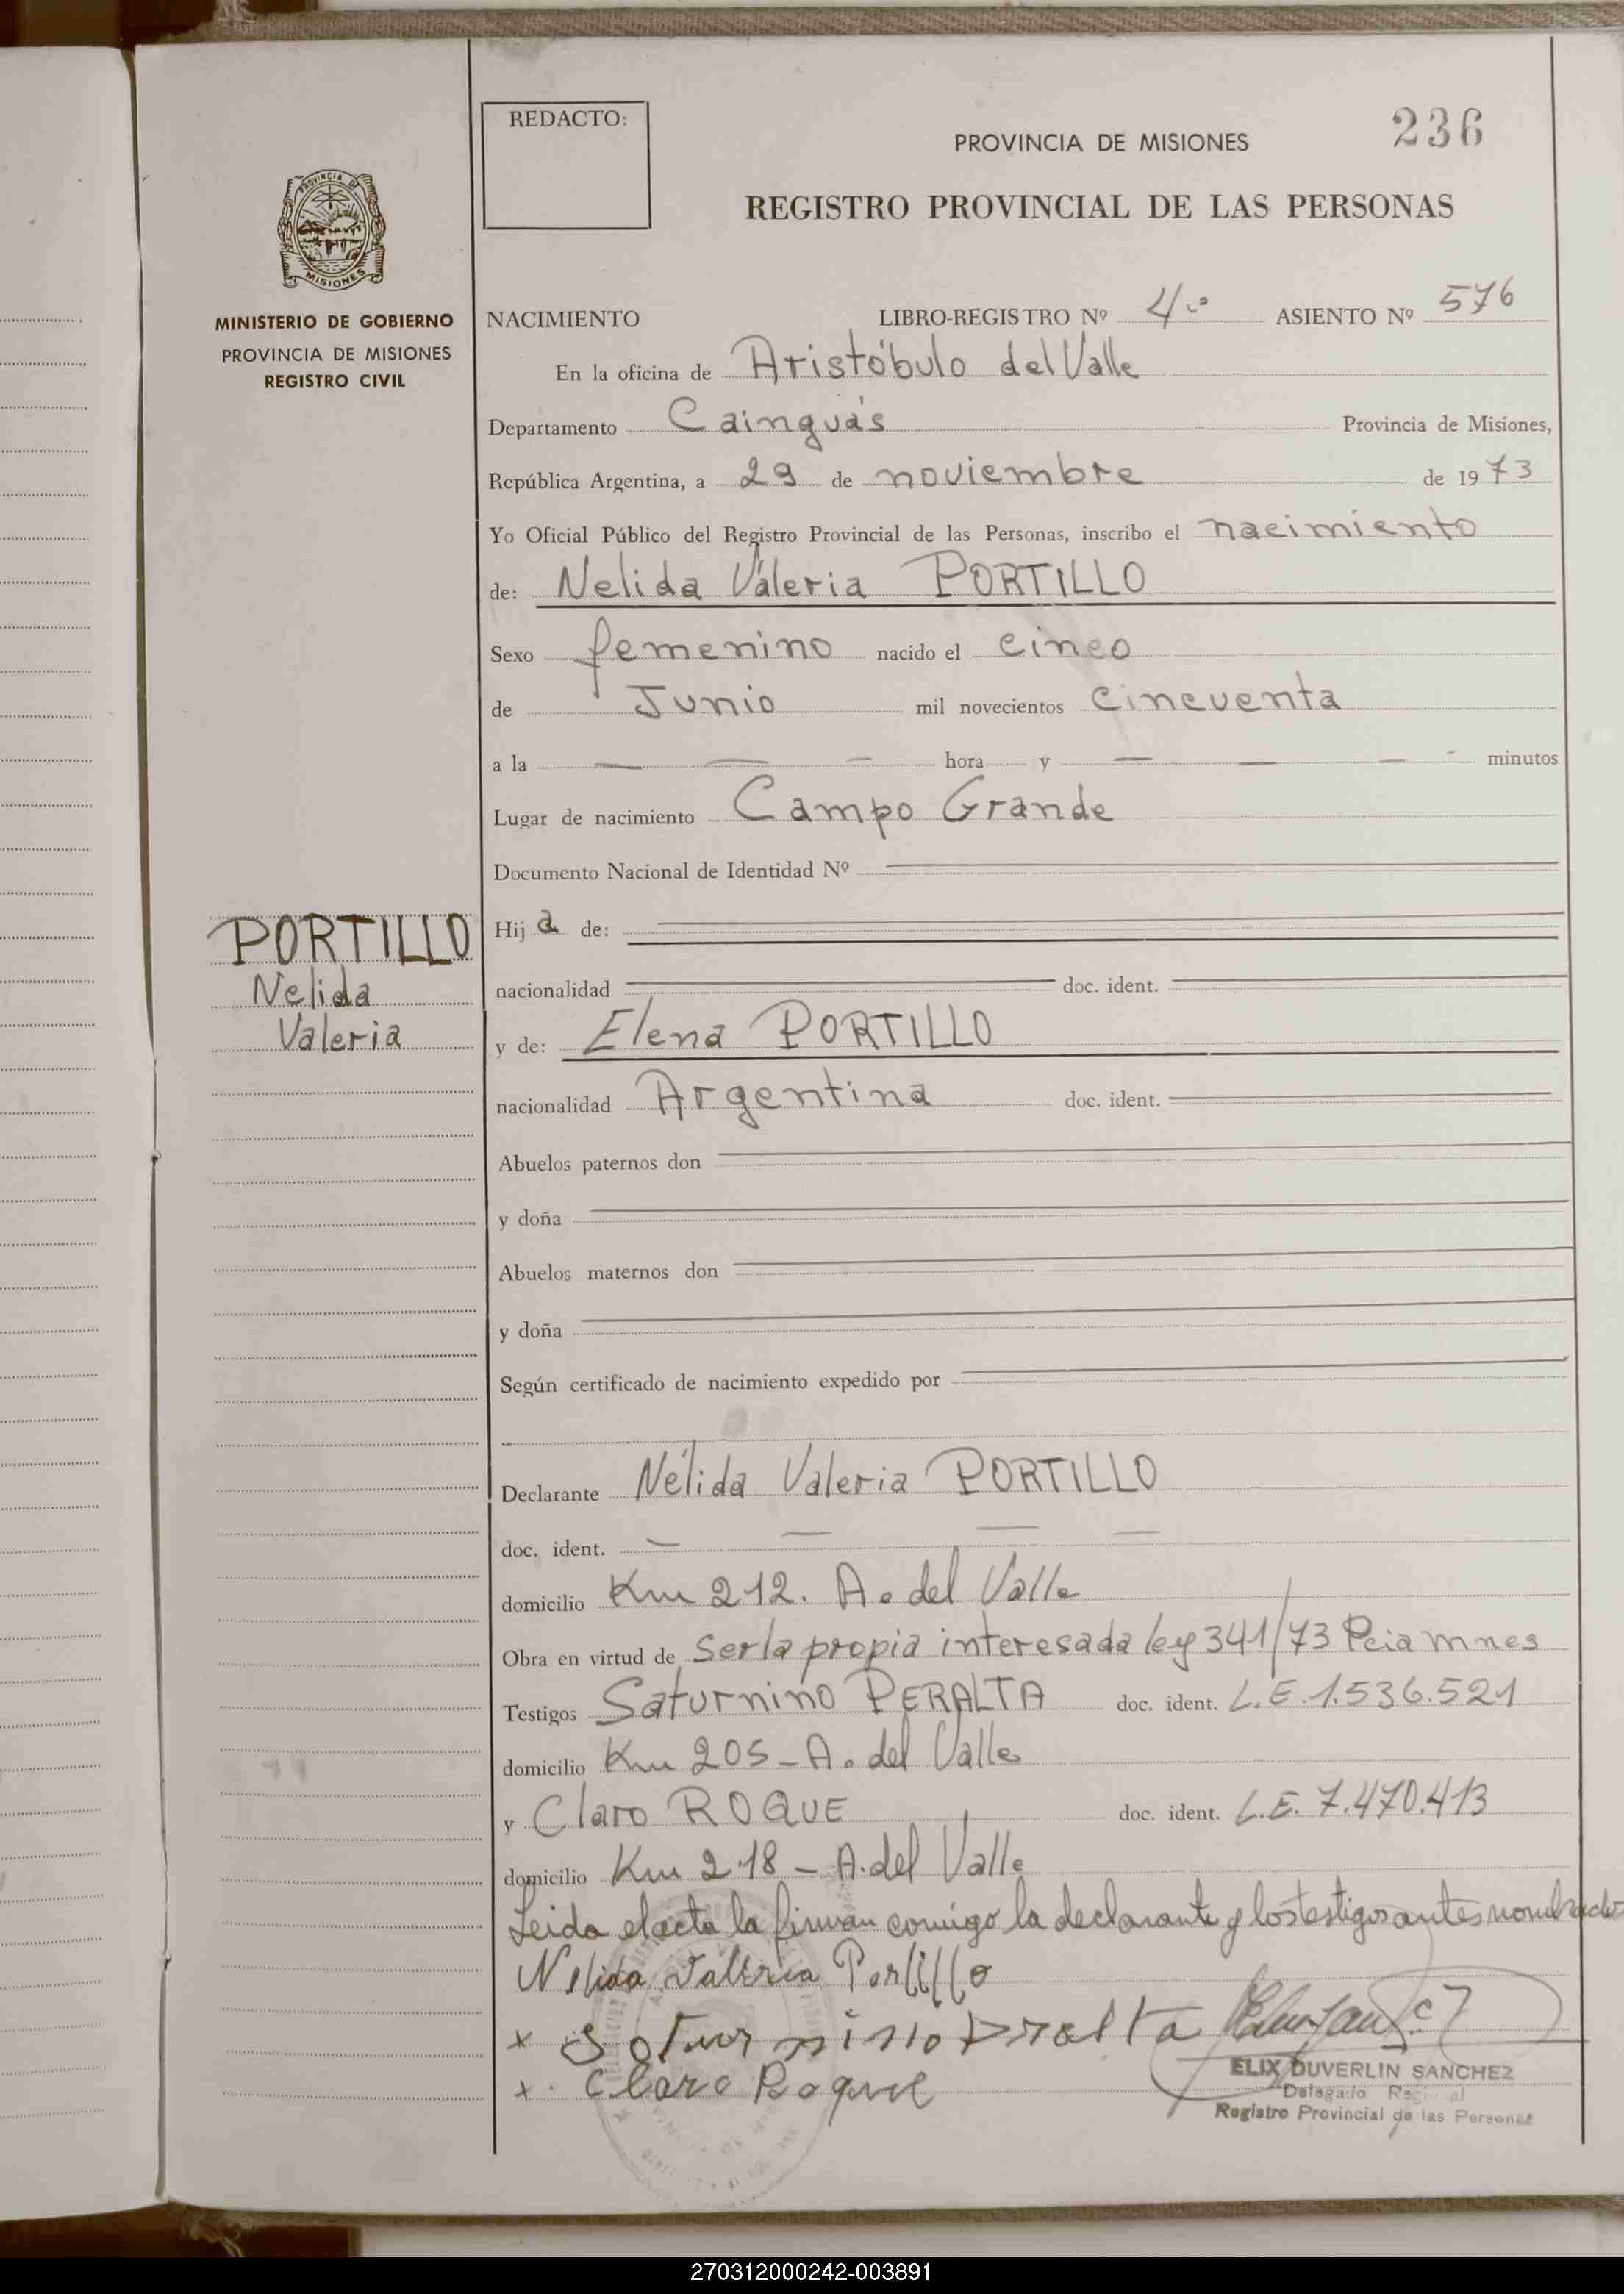 REDACTO:
236
PROVINCIA DE MISIONES
REGISTRO PROVINCIAL DE LAS PERSONAS
PROVINCIA DE
MISIONES
MINISTERIO DE GOBIERNO
PROVINCIA DE MISIONES
REGISTRO CIVIL
NACIMIENTO LIBRO-REGISTRO Nº 4º ASIENTO Nº 576
En la oficina de Aristóbulo del Valle
Departamento Cainguás Provincia de Misiones,
República Argentina, a 29 de noviembre de 1973
Yo Oficial Público del Registro Provincial de las Personas, inscribo el nacimiento
de: Nelida Valeria PORTILLO
Sexo femenino nacido el cinco
de Junio mil novecientos cincuenta
a la — — — hora y — — — - minutos
Lugar de nacimiento Campo Grande
Documento Nacional de Identidad Nº
PORTILLO
Nelida
Valeria
Hija de:
nacionalidad doc. ident.
y de: Elena PORTILLO
nacionalidad Argentina doc. ident.
Abuelos paternos don
y doña
Abuelos maternos don
y doña
Según certificado de nacimiento expedido por
Declarante Nélida Valeria PORTILLO
doc. ident. — — — —
domicilio Km 212. A. del Valle
Obra en virtud de Ser la propia interesada ley 341/73 Pcia Mnes
Testigos Saturnino PERALTA doc. ident. L.E. 1.536.521
domicilio Km 205 - A. del Valle
y Claro ROQUE doc. ident. L.E. 7.470.413
domicilio Km 218 - A. del Valle
Leida el acta la firman conmigo la declarante y los testigos antes nombrados
Nelida Valeria Portillo
x Soturnino Pralta
x. Claro Roque
ELIX DUVERLIN SANCHEZ
Delegado Regional
Registro Provincial de las Personas
270312000242-003891